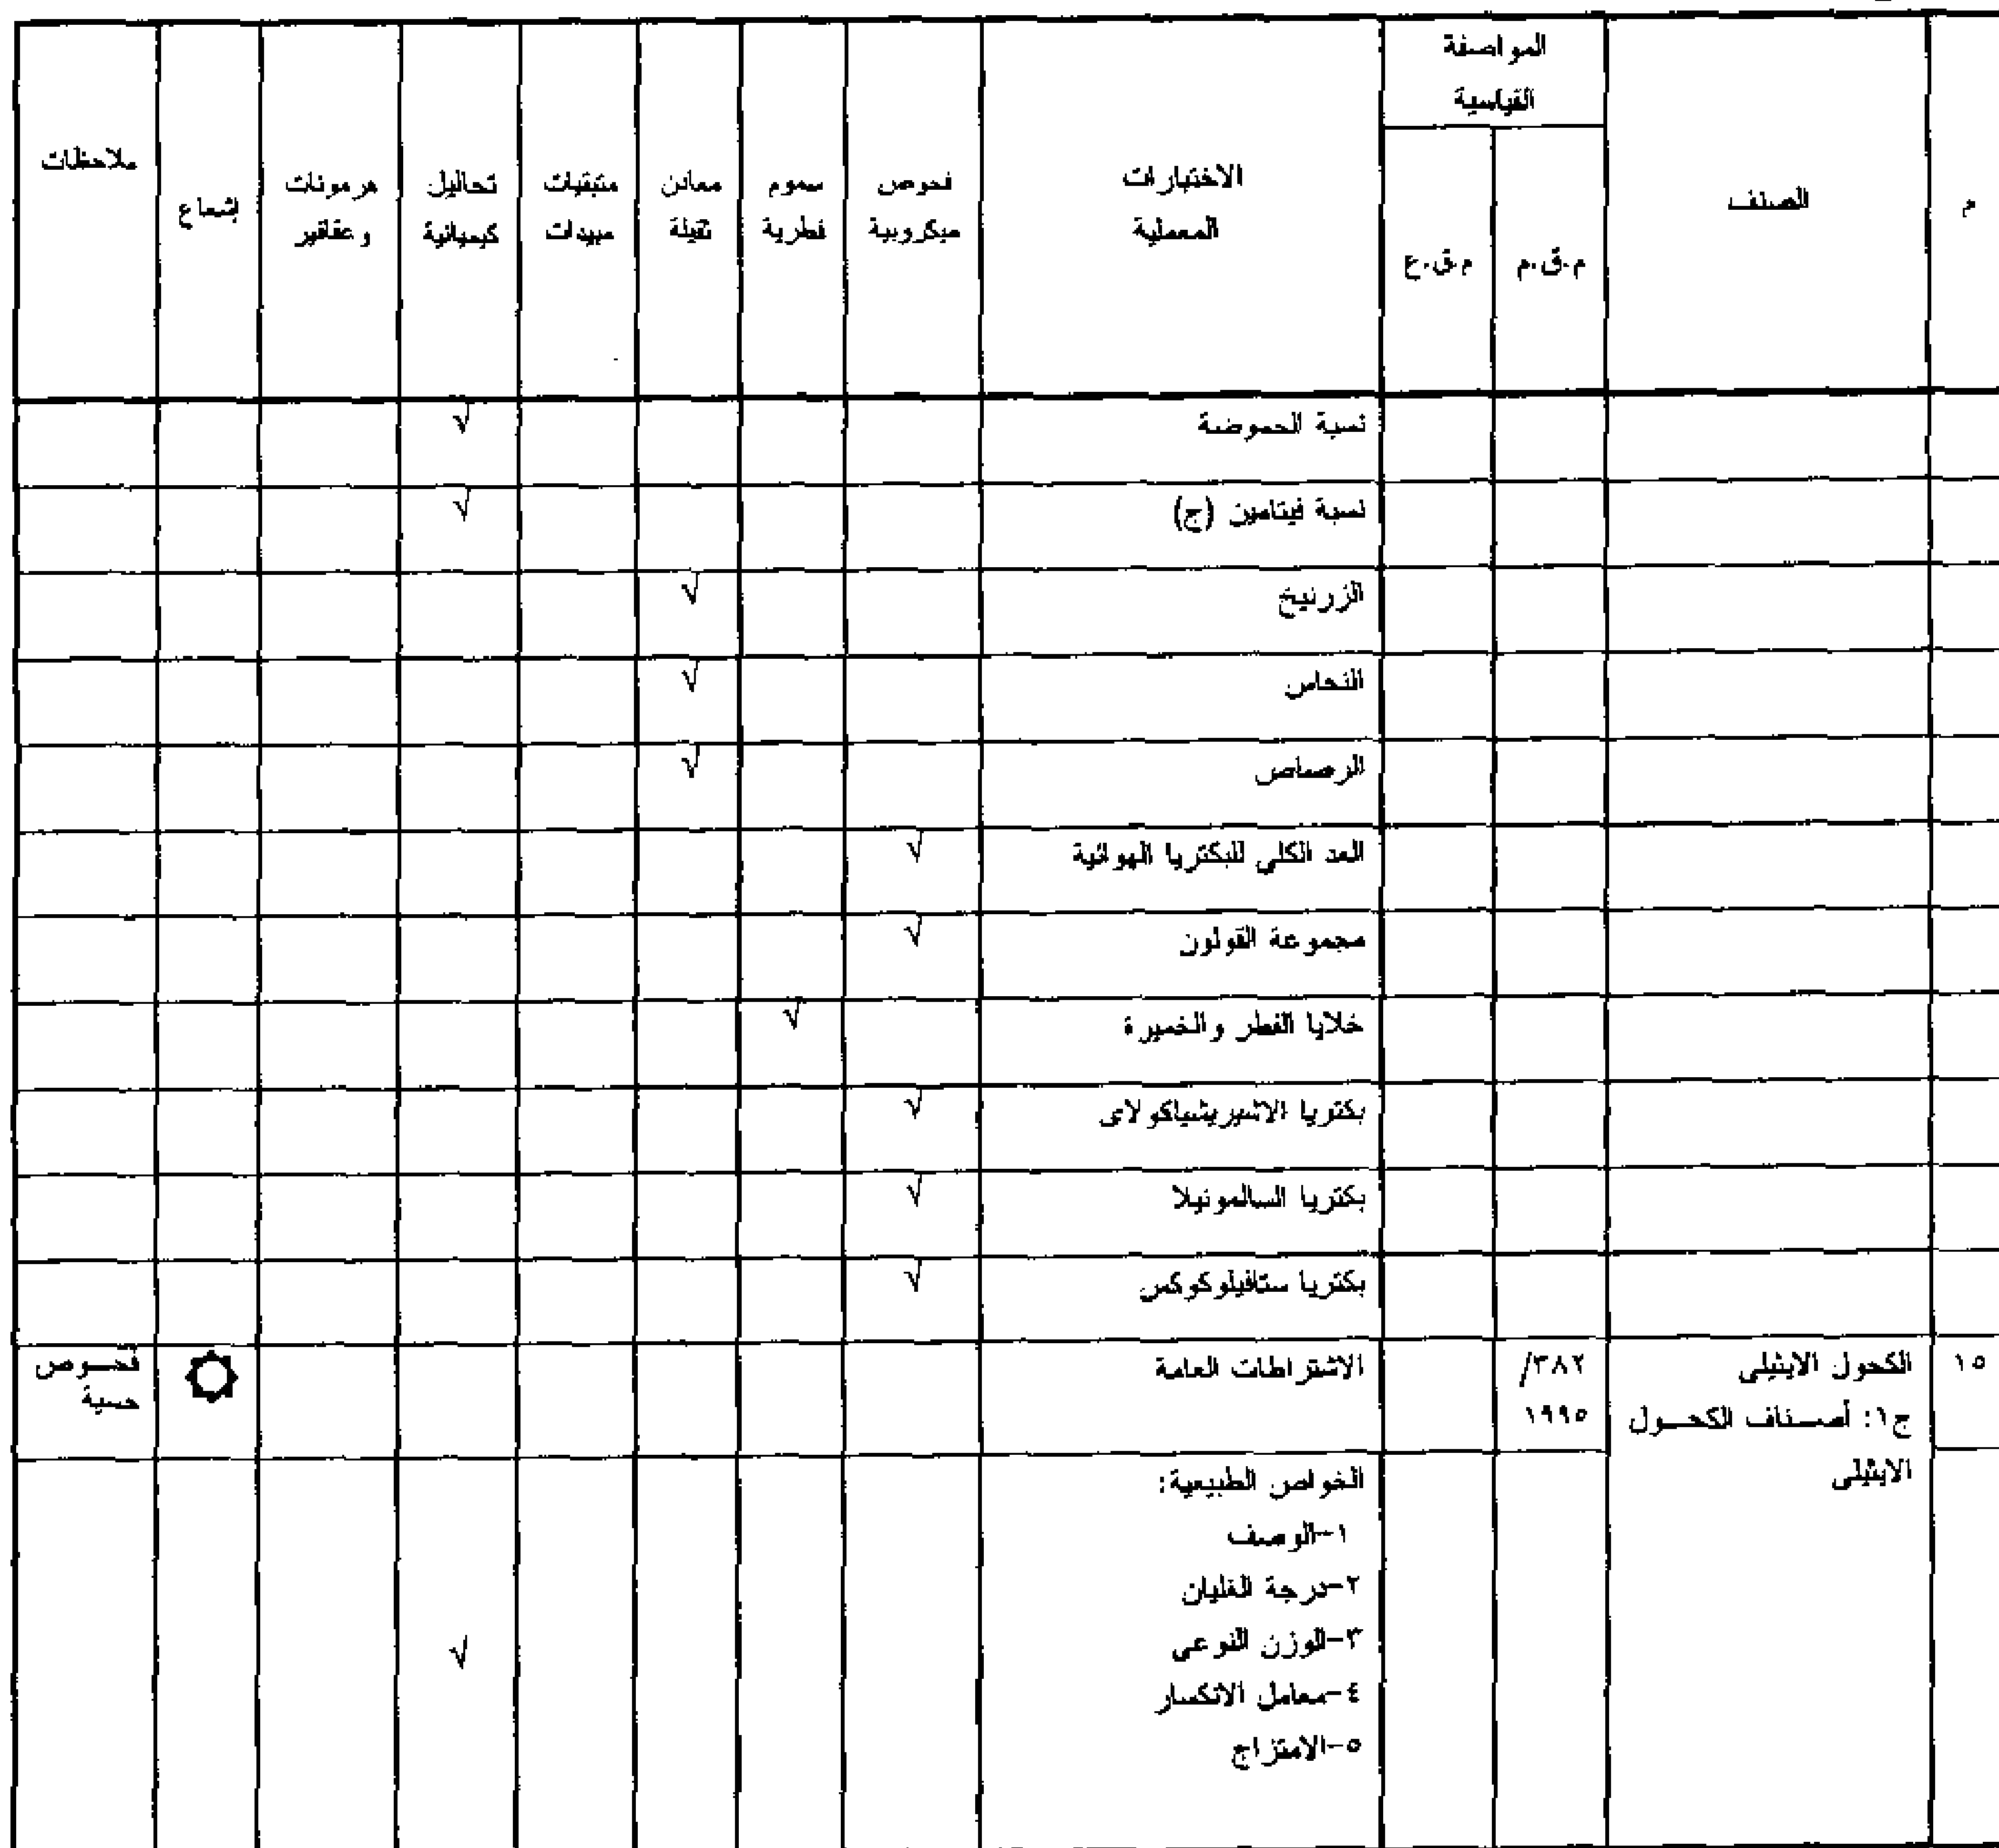 م
الصنف
المواصفة
القياسية
م.ق.م
م.ق.ع
الاختبارات
المعملية
فحوص
ميكروبية
سموم
فطرية
معادن
ثقيلة
متبقيات
مبيدات
تحاليل
كيميائية
هرمونات
وعقاقير
إشعاع
ملاحظات
نسبة الحموضة √
نسبة فيتامين (ج) √
الزرنيخ √
النحاس √
الرصاص √
العد الكلى للبكتريا الهوائية √
مجموعة القولون √
خلايا الفطر والخميرة √
بكتريا الاشيريشياكولاى √
بكتريا السالمونيلا √
بكتريا ستافيلوكوكس √
١٥
الكحول الايثيلى
ج١: أصناف الكحول
الايثيلى
٣٨٢/
١٩٩٥
الاشتراطات العامة
فحوص
حسية
الخواص الطبيعية:
١-الوصف
٢-درجة الغليان
٣-الوزن النوعى √
٤-معامل الانكسار
٥-الامتزاج